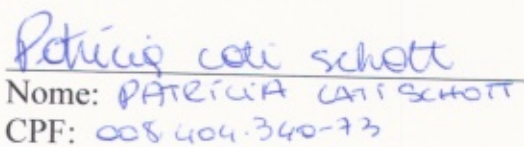 Patrícia Cati Schott
Nome: PATRÍCIA CATI SCHOTT
CPF: 008.404.340-73